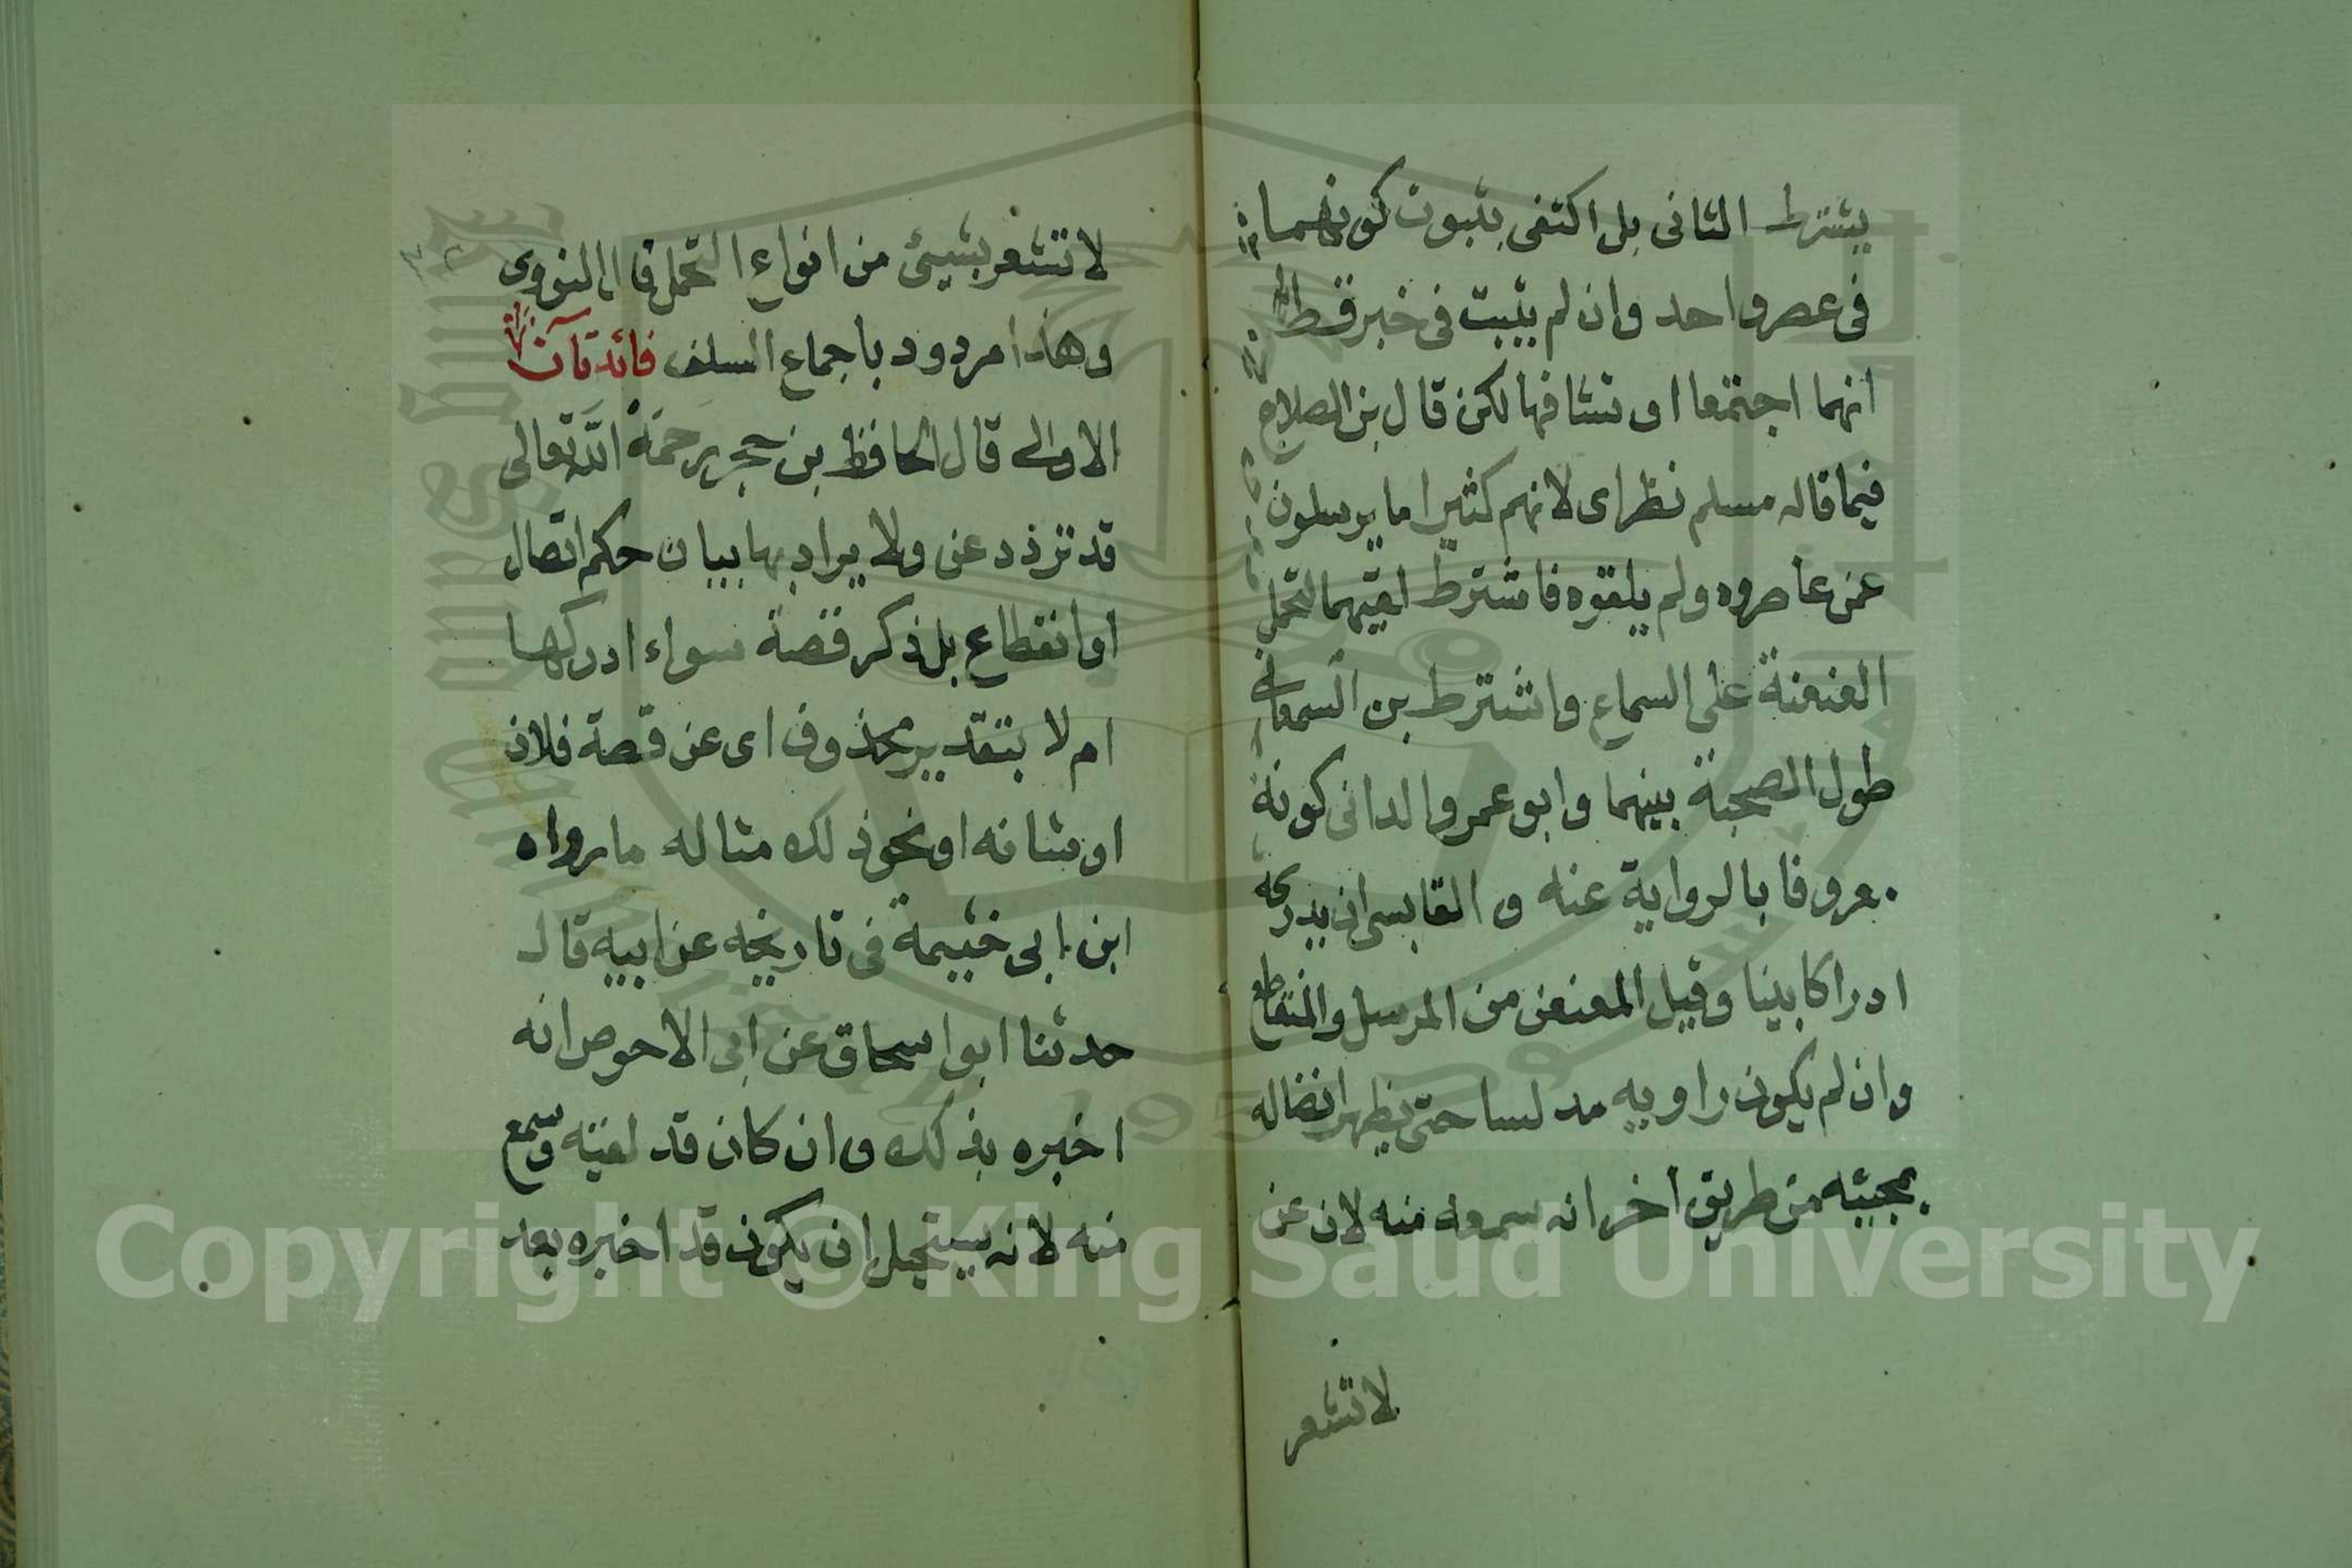 يشترط الثانى بل اكتفى بثبوت كونهما
فى عصر واحد وان لم يثبت فى خبر قط
انهما اجتمعا او تشافها لكن قال بن الصلاح
فيما قاله مسلم نظر اى لانهم كثيرا ما يرسلون
عن عاصروه ولم يلقوه فاشترط لقيهما لتحمل
العنعنة على السماع واشترط بن السمعانى
طول الصحبة بينهما وابو عمرو الدانى كونه
معروفا بالرواية عنه والقابسى ان يدركه
ادراكا بينا وقيل المعنعن من المرسل والمنقطع
وان لم يكون راويه مدلسا حتى يظهر اتصاله
بمجيئه من طريق اخر انه سمعه منه لان عن
لا تشعر
لا تشعر بشيئ من انواع التحمل قال النووى
وهذا مردود باجماع السلف فائدتان
الاولى قال الحافظ بن حجر رحمة الله تعالى
قد ترد عن ولا يراد بها بيان حكم اتصال
او انقطاع بل ذكر قصة سواء ادركها
ام لا بتقدير محذوف اى عن قصة فلان
او شانه او نحو ذلك مثاله ما رواه
ابن ابى خثيمة فى تاريخه عن ابيه قال
حدثنا ابو اسحاق عن ابى الاحوص انه
اخبره بذلك وان كان قد لقيه وسمع
منه لانه يستحيل ان يكون قد اخبره بعد
Copyright © King Saud University